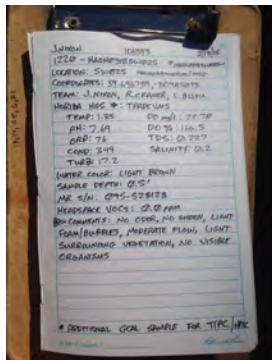 J. NIXON
1220 -
LOCATION: SW025
COORDINATES: 39.696789,
TEAM: J. NIXON, R. CRAMER,
HORIBA MDS #:
TEMP: 1.85 DO mg/L: 22.70
PH: 7.69 DO %: 166.5
ORP: 76 TDS: 0.227
COND: 349 SALINITY: 0.2
TURB: 17.2
WATER COLOR: LIGHT BROWN
SAMPLE DEPTH: 0.5'
MR S/N: 095-528128
HEADSPACE VOCS: 0.0 PPM
COMMENTS: NO ODOR, NO SHEEN, LIGHT
FOAM/BUBBLES, MODERATE FLOW, LIGHT
SURROUNDING VEGETATION, NO VISIBLE
ORGANISMS
* ADDITIONAL GCAL SAMPLE FOR